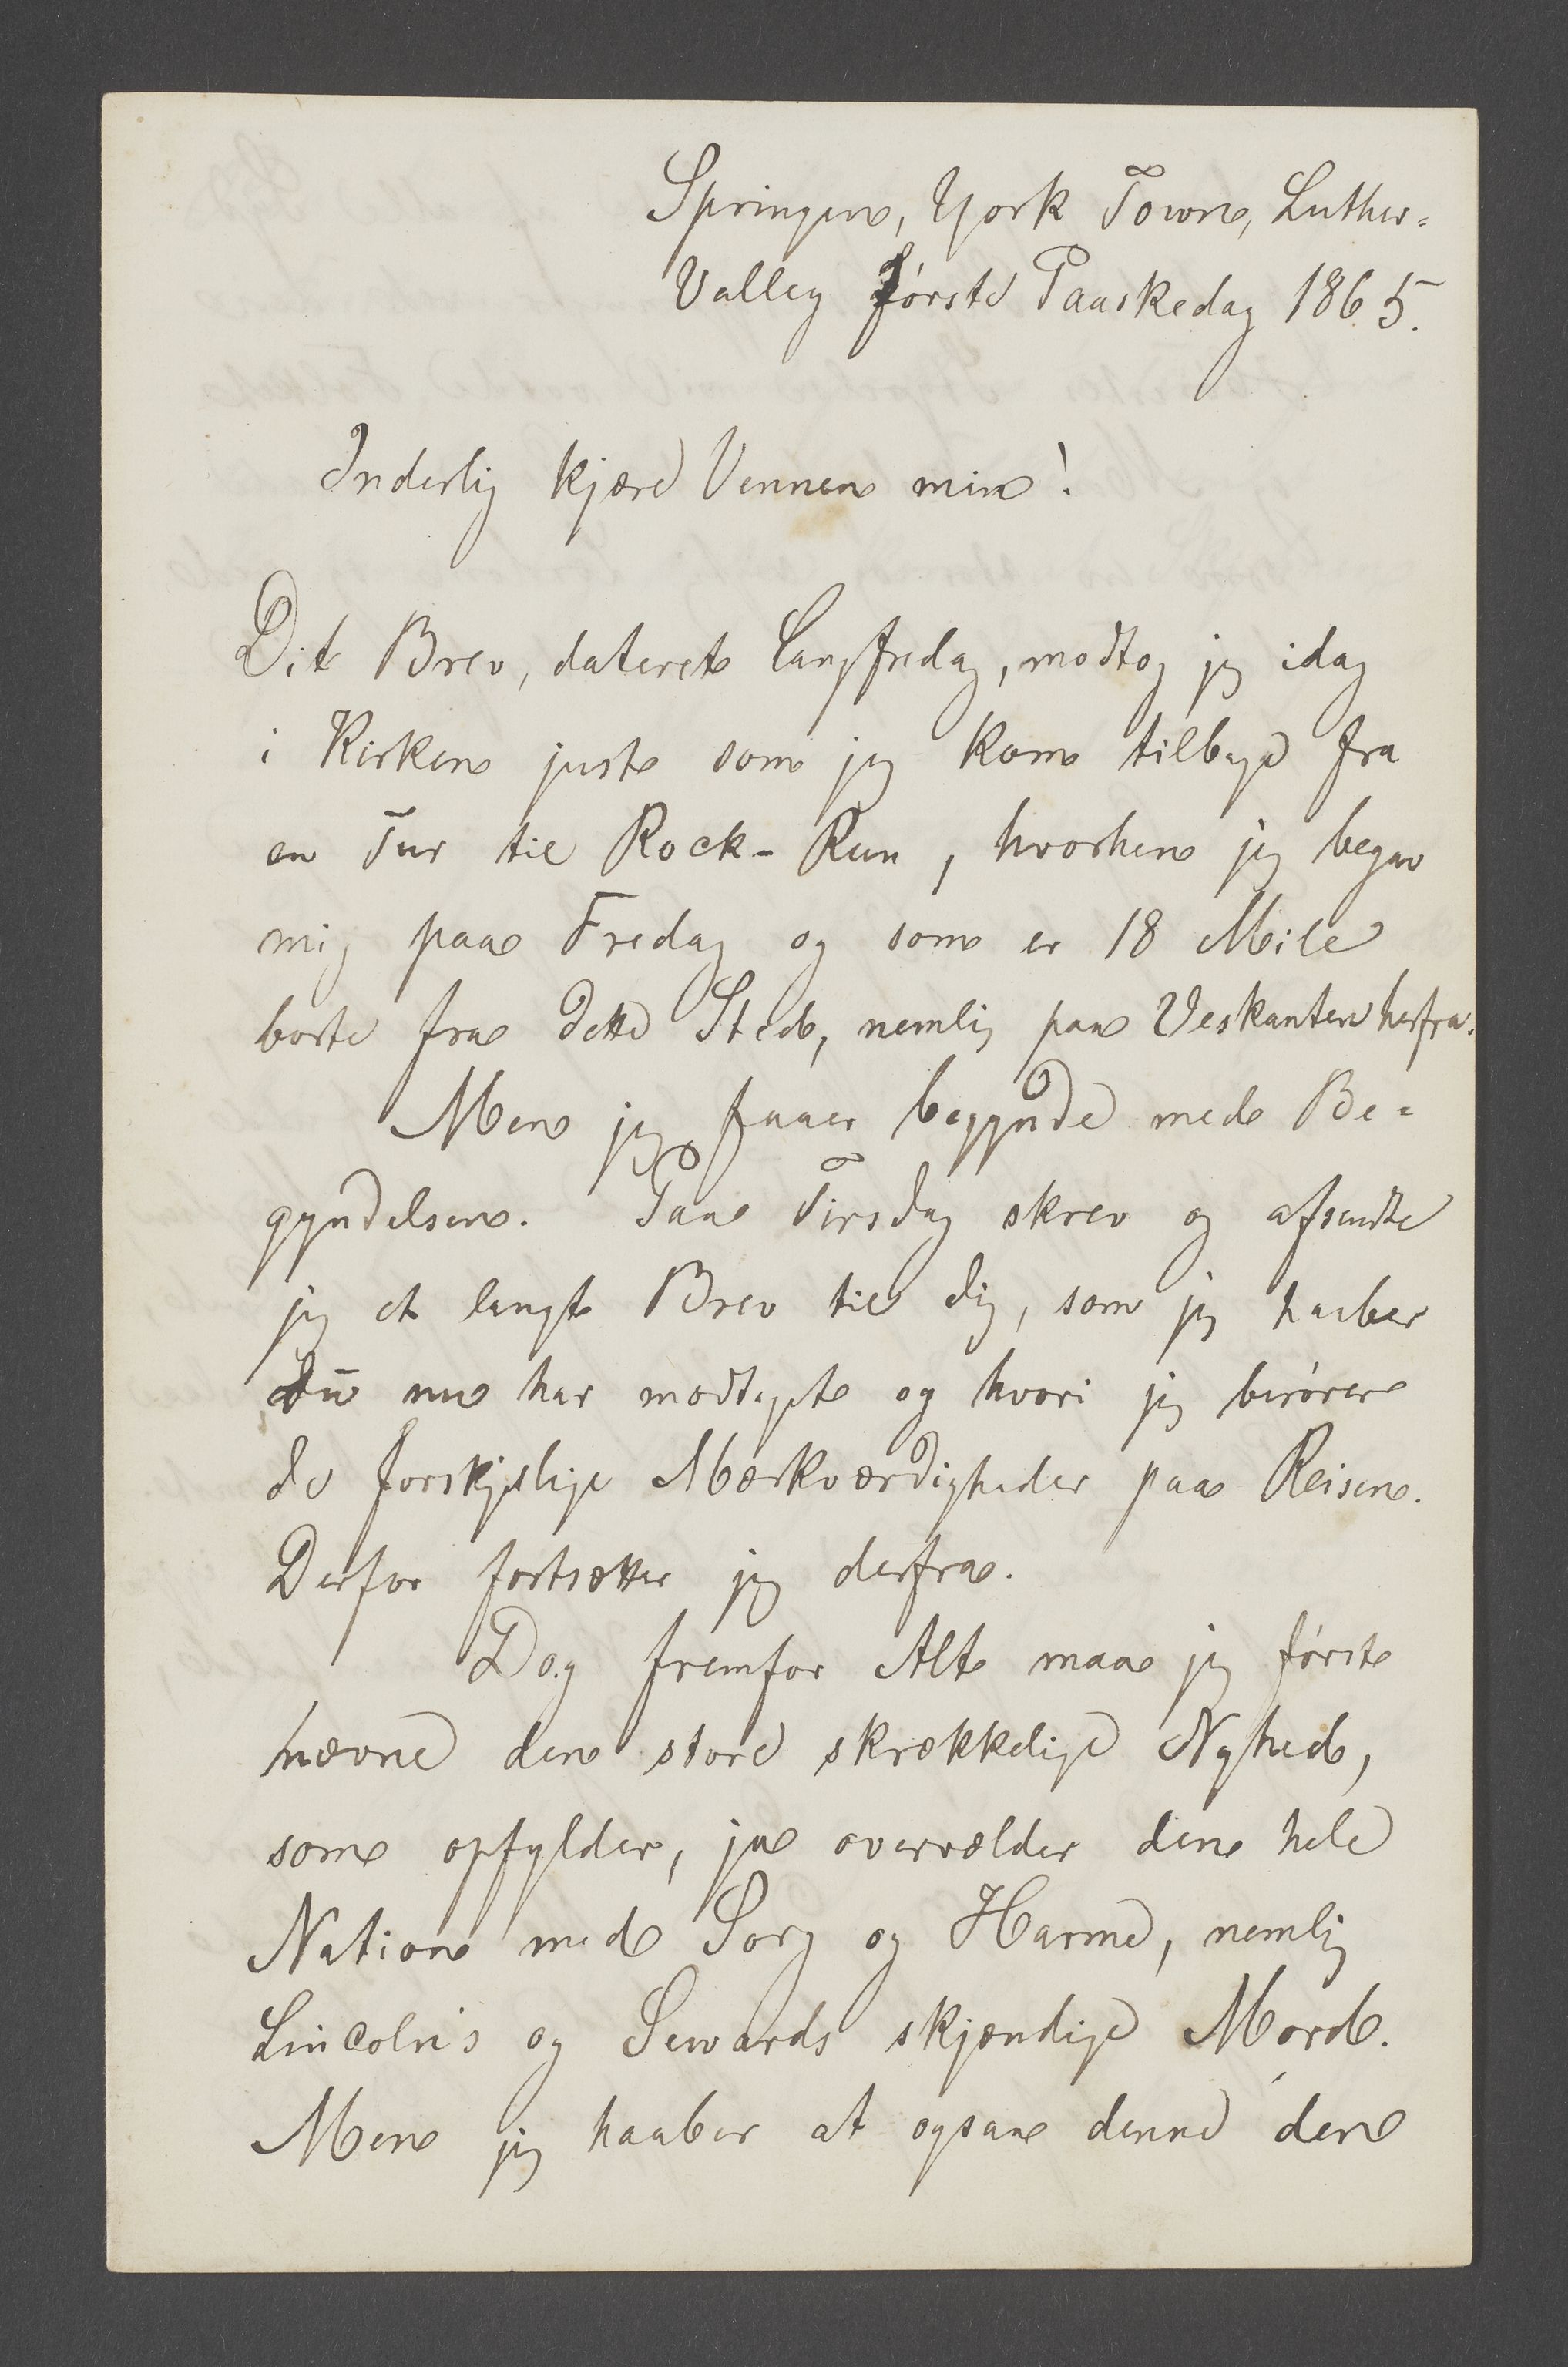 Springen, York Town, Luther-
Valley første Paaskedag 1865.
Inderlig kjære Vennen min!
Dit Brev, dateret Langfredag, modtog jeg idag
i Kirken just som jeg kom tilbage fra
en Tur til Rock-Run, hvorhen jeg begav
mig paa Fredag og som er 18 Mile
borte fra dette Sted, nemlig paa Veskanten herfra.
Men jeg faaer begynde med Be-
gyndelsen. Paa Tirsdag skrev og afsendte
jeg et langt Brev til dig, som jeg haaber
du nu har modtaget og hvori jeg berører
de forskjelige Mærkværdigheder paa Reisen.
Derfor fortsætter jeg derfra.
Dog fremfor Alt maa jeg først
nævne den store skrækkelige Nyhed,
som opfylder, ja overvælder den hele
Nation med Sorg og Harme, nemlig
Lincoln's og Sewards skjændige Mord.
Men jeg haaber at ogsaa denne den